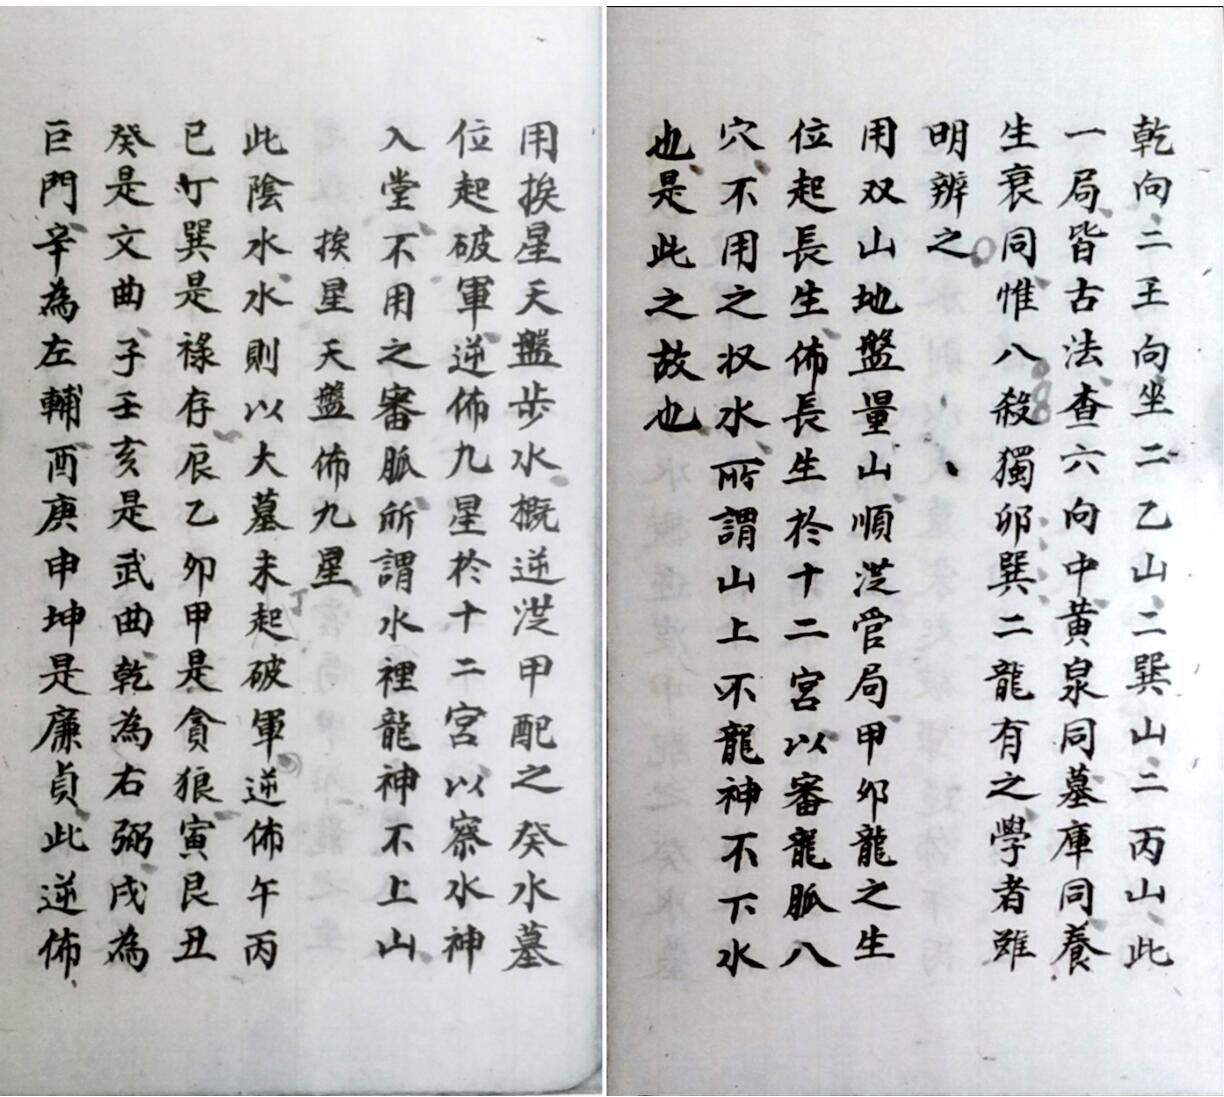 乾向二壬向坐二乙山二巽山二丙山此
一局皆古法查六向中黃泉同墓庫同養
生衰同惟八殺獨卯巽二龍有之學者雖
明辨之
用双山地盤量山順官局甲卯龍之生
位起長生佈長生於十二宮以審龍脈八
穴不用之収水所謂山上不龍神不下水
也是此之故也
用挨星天盤步水概逆甲配之癸水墓
位起破軍逆佈九星於十二宮以察水神
入堂不用之審脈所謂水裡龍神不上山
挨星天盤佈九星
此陰水水則以大墓未丁起破軍逆佈午丙
巳丁巽是祿存辰乙卯甲是貪狼寅艮丑
癸是文曲子壬亥是武曲乾為右弼戌為
巨門辛為左輔酉庚申坤是廉貞此逆佈